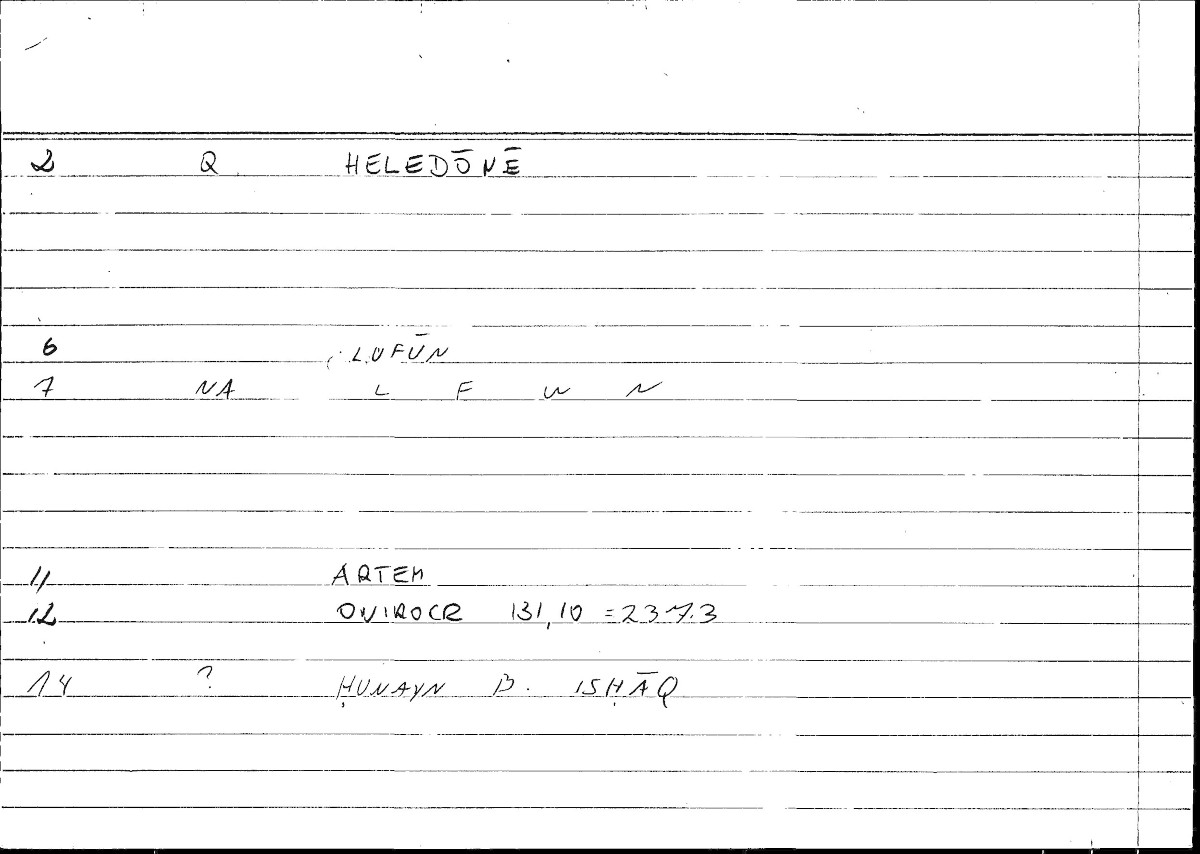 2 Q HELEDŌNĒ
6 LUFŪN
7 NA L F W N
11 ARTEM
12 ONIROCR 131,10 = 237.3
14 ? ḤUNAYN B. ISḤĀQ